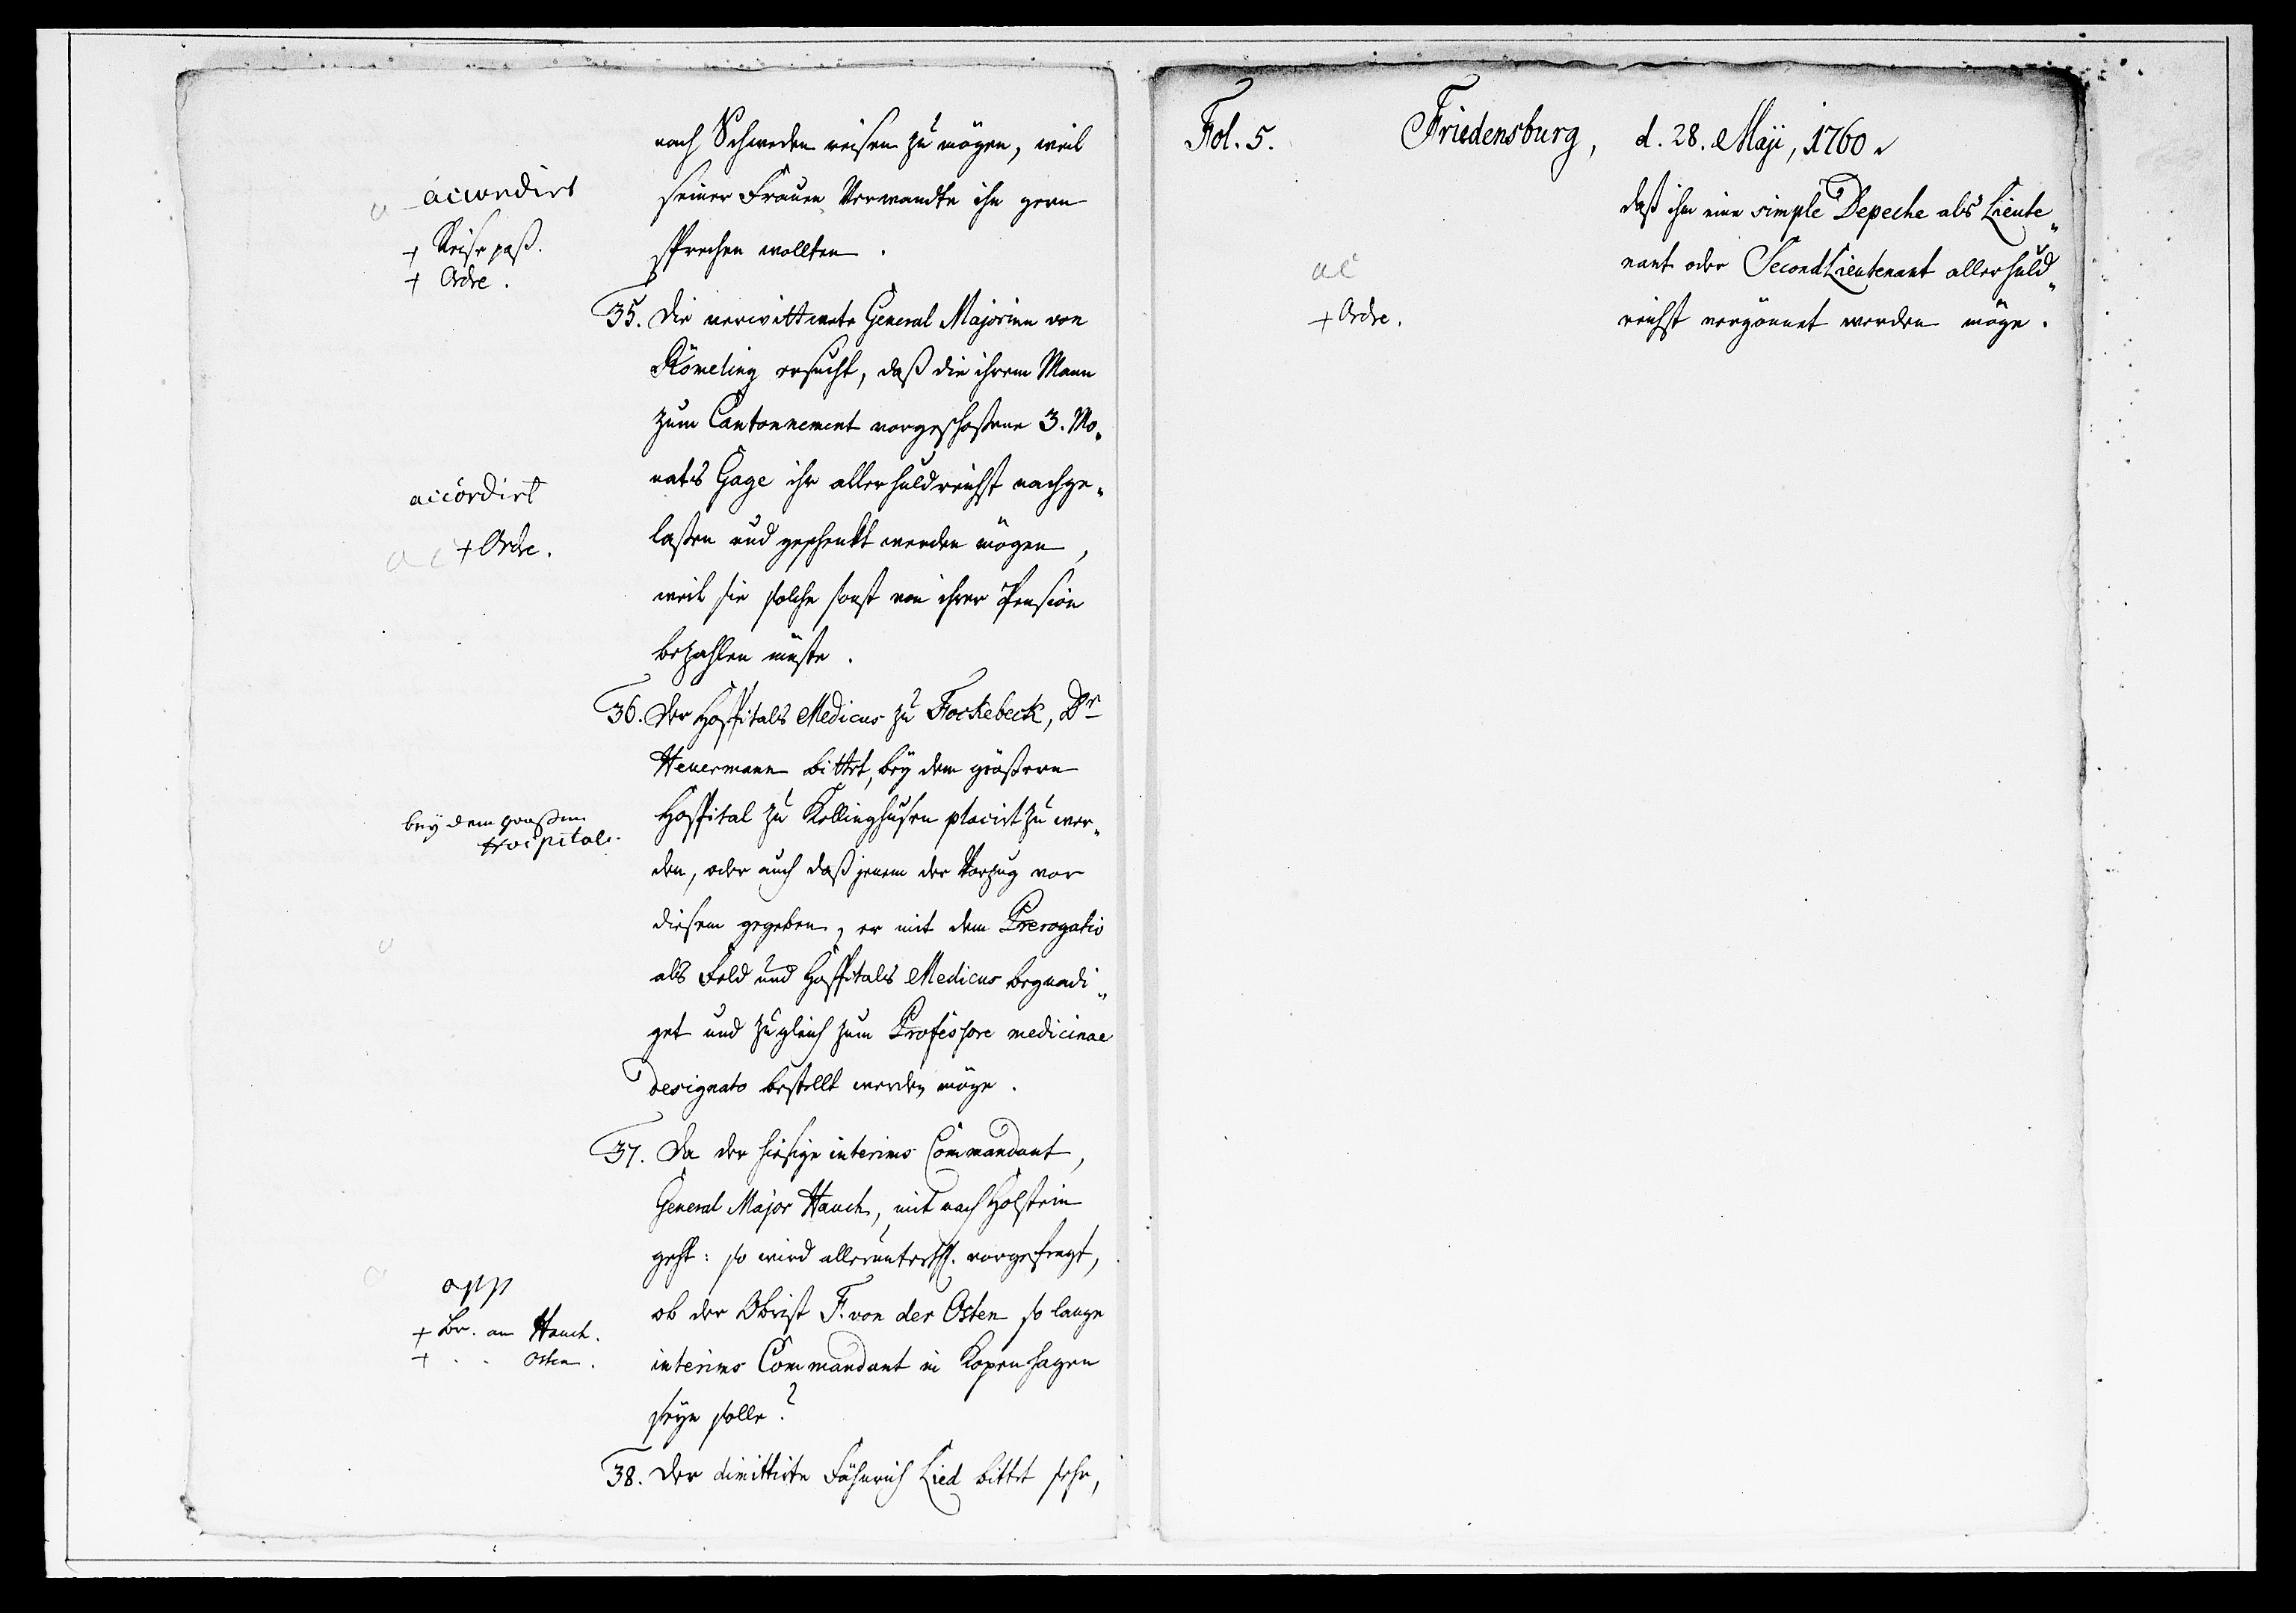 nach Schweden reisen zu mögen, weil
accordirt
seiner Frauen Verwandte ihn gern
+ Reise paß.
sprechen wollten.
+ Ordre.
35. Die verwittwete General Majorinn von
Römeling ersucht, daß die ihrem Mann
zum Cantonnement vorgeschoßene 3. Mo„
nats Gage ihr allerhuldreichst nachge„
accordirt
laßen und geschenkt werden mögen,
+ Ordre.
weil sie solche sonst von ihrer Pension
bezahlen müste.
36. Der Hospitals Medicus zu Fockebeck, Dr
Heuermann bittet, bey dem größern
Hospital zu Kellinghusen placirt zu wer„
bey dem großen
Hospital.
den, oder auch daß jenem der Vorzug vor
diesem gegeben, er mit dem Prerogativ
als Feld und Hospitals Medicus begnadi„
get und zugleich zum Professore medicinae
designato bestellt werden möge.
37. Da der hiesige interims Commandant,
General Major Hauch, mit nach Holstein
geht: so wird alleruntersth. vorgefragt,
app
ob der Obrist F. von der Osten so lange
+ Br. an Hauch.
interims Commandant in Kopenhagen
+ . . Osten.
seyn solle?
38. Der dimittirte Fähnrich Lied bittet sehr,
Fol. 5. Friedensburg, d. 28. Maji, 1760.
daß ihm eine simple Depeche als Lieute„
nant oder SecondLieutenant allerhuld„
ac
reichst vergönnet werden möge.
+ Ordre.